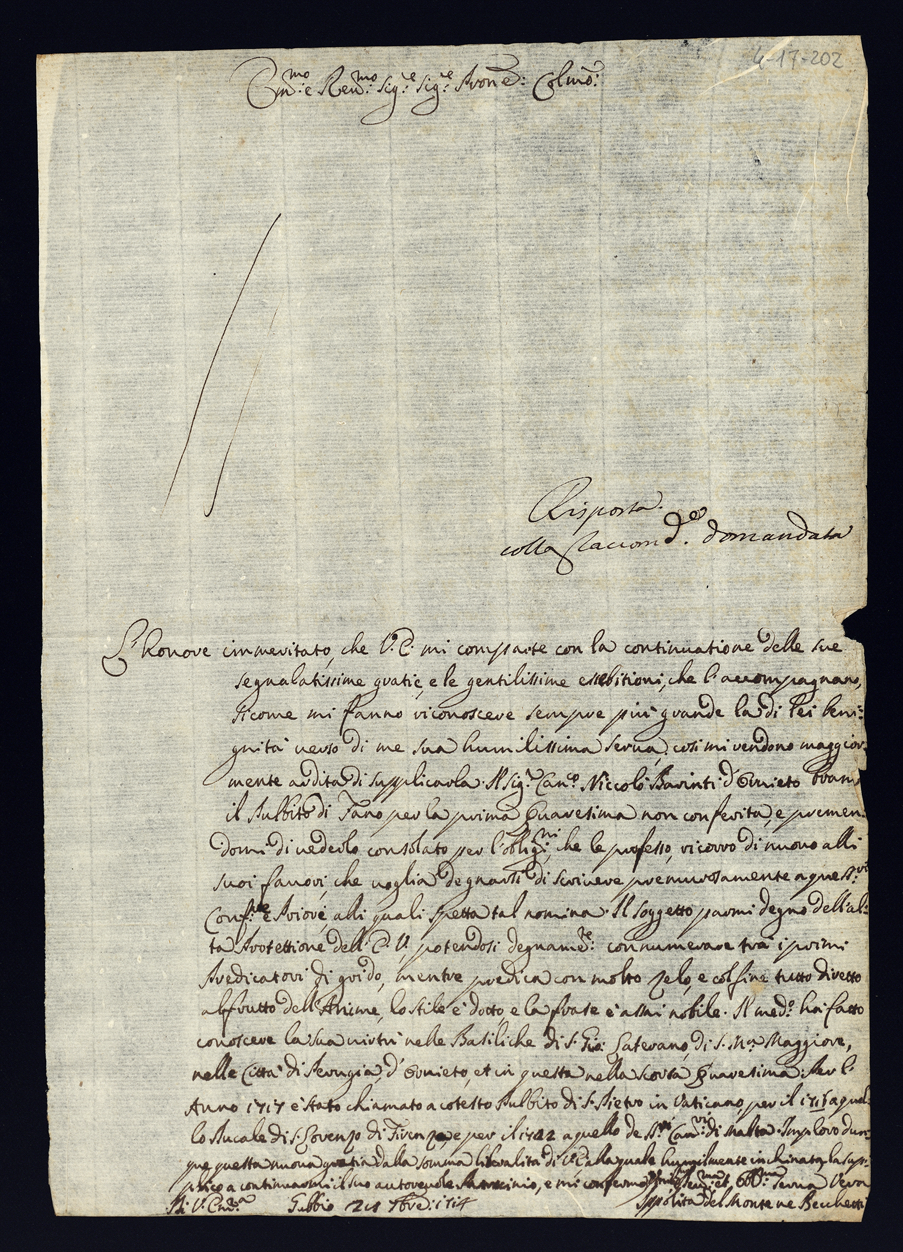 4-17-202
Em.mo e Rev.mo Sig.re Sig.re Pron.e Colmo:
Risposta.
colla Raccom.d.e domandata
L'honore immeritato, che V. E. mi comparte con la continuatione delle sue
segnalatissime gratie, e le gentilissime essebitioni, che l'accompagnano,
sicome mi fanno riconoscere sempre più grande la di Lei beni=
gnità verso di me sua humilissima serva, cosi mi rendono maggior=
mente ardita di supplicarla. Il Sig.r Can.co Niccolò Barinti d'Orvieto bram
il Pulpito di Fano per la prima Quaresima non conferita, e premen=
domi di vederlo consolato per l'oblig.ni, che le professo, ricorro di nuovo alli
suoi favori, che voglia degnarsi di scrivere premurosamente a quest.ri
Conf.re e Priore, alli quali spetta tal nomina. Il soggetto parmi degno dell'al=
ta Protettione dell'E. V. potendosi degnam.te connumerare trà i primi
Predicatori di grido, mentre predica con molto zelo, e col fine tutto diretto
al frutto dell'Anime, lo stile è dotto e la frase è assai nobile. Il med.o hà fatto
conoscere la sua virtù nelle Basiliche di S. Gio: Laterano di S. M.a Maggiore,
nelle Città di Perugia d'Orvieto, et in questa nella scorsa Quaresima. Per l'
Anno 1717 è stato chiamato a cotesto Pulpito di S. Pietro in Vaticano, per il 1718 a quel=
lo Ducale di S. Lorenzo di Firenze, e per il 1722 a quello de Cav.ri di Malta. Imploro dun=
que questa nuova gratia dalla somma liberalità di V. E. alla quale humilmente inchinata la sup=
plico a continuarmi il suo autorevole Patrocinio, e mi confermo
Di V. Em.za Gubbio 21 7bre: 1714
et obb.ma Serva Vera
Ippolita del Monte ne Becchetti